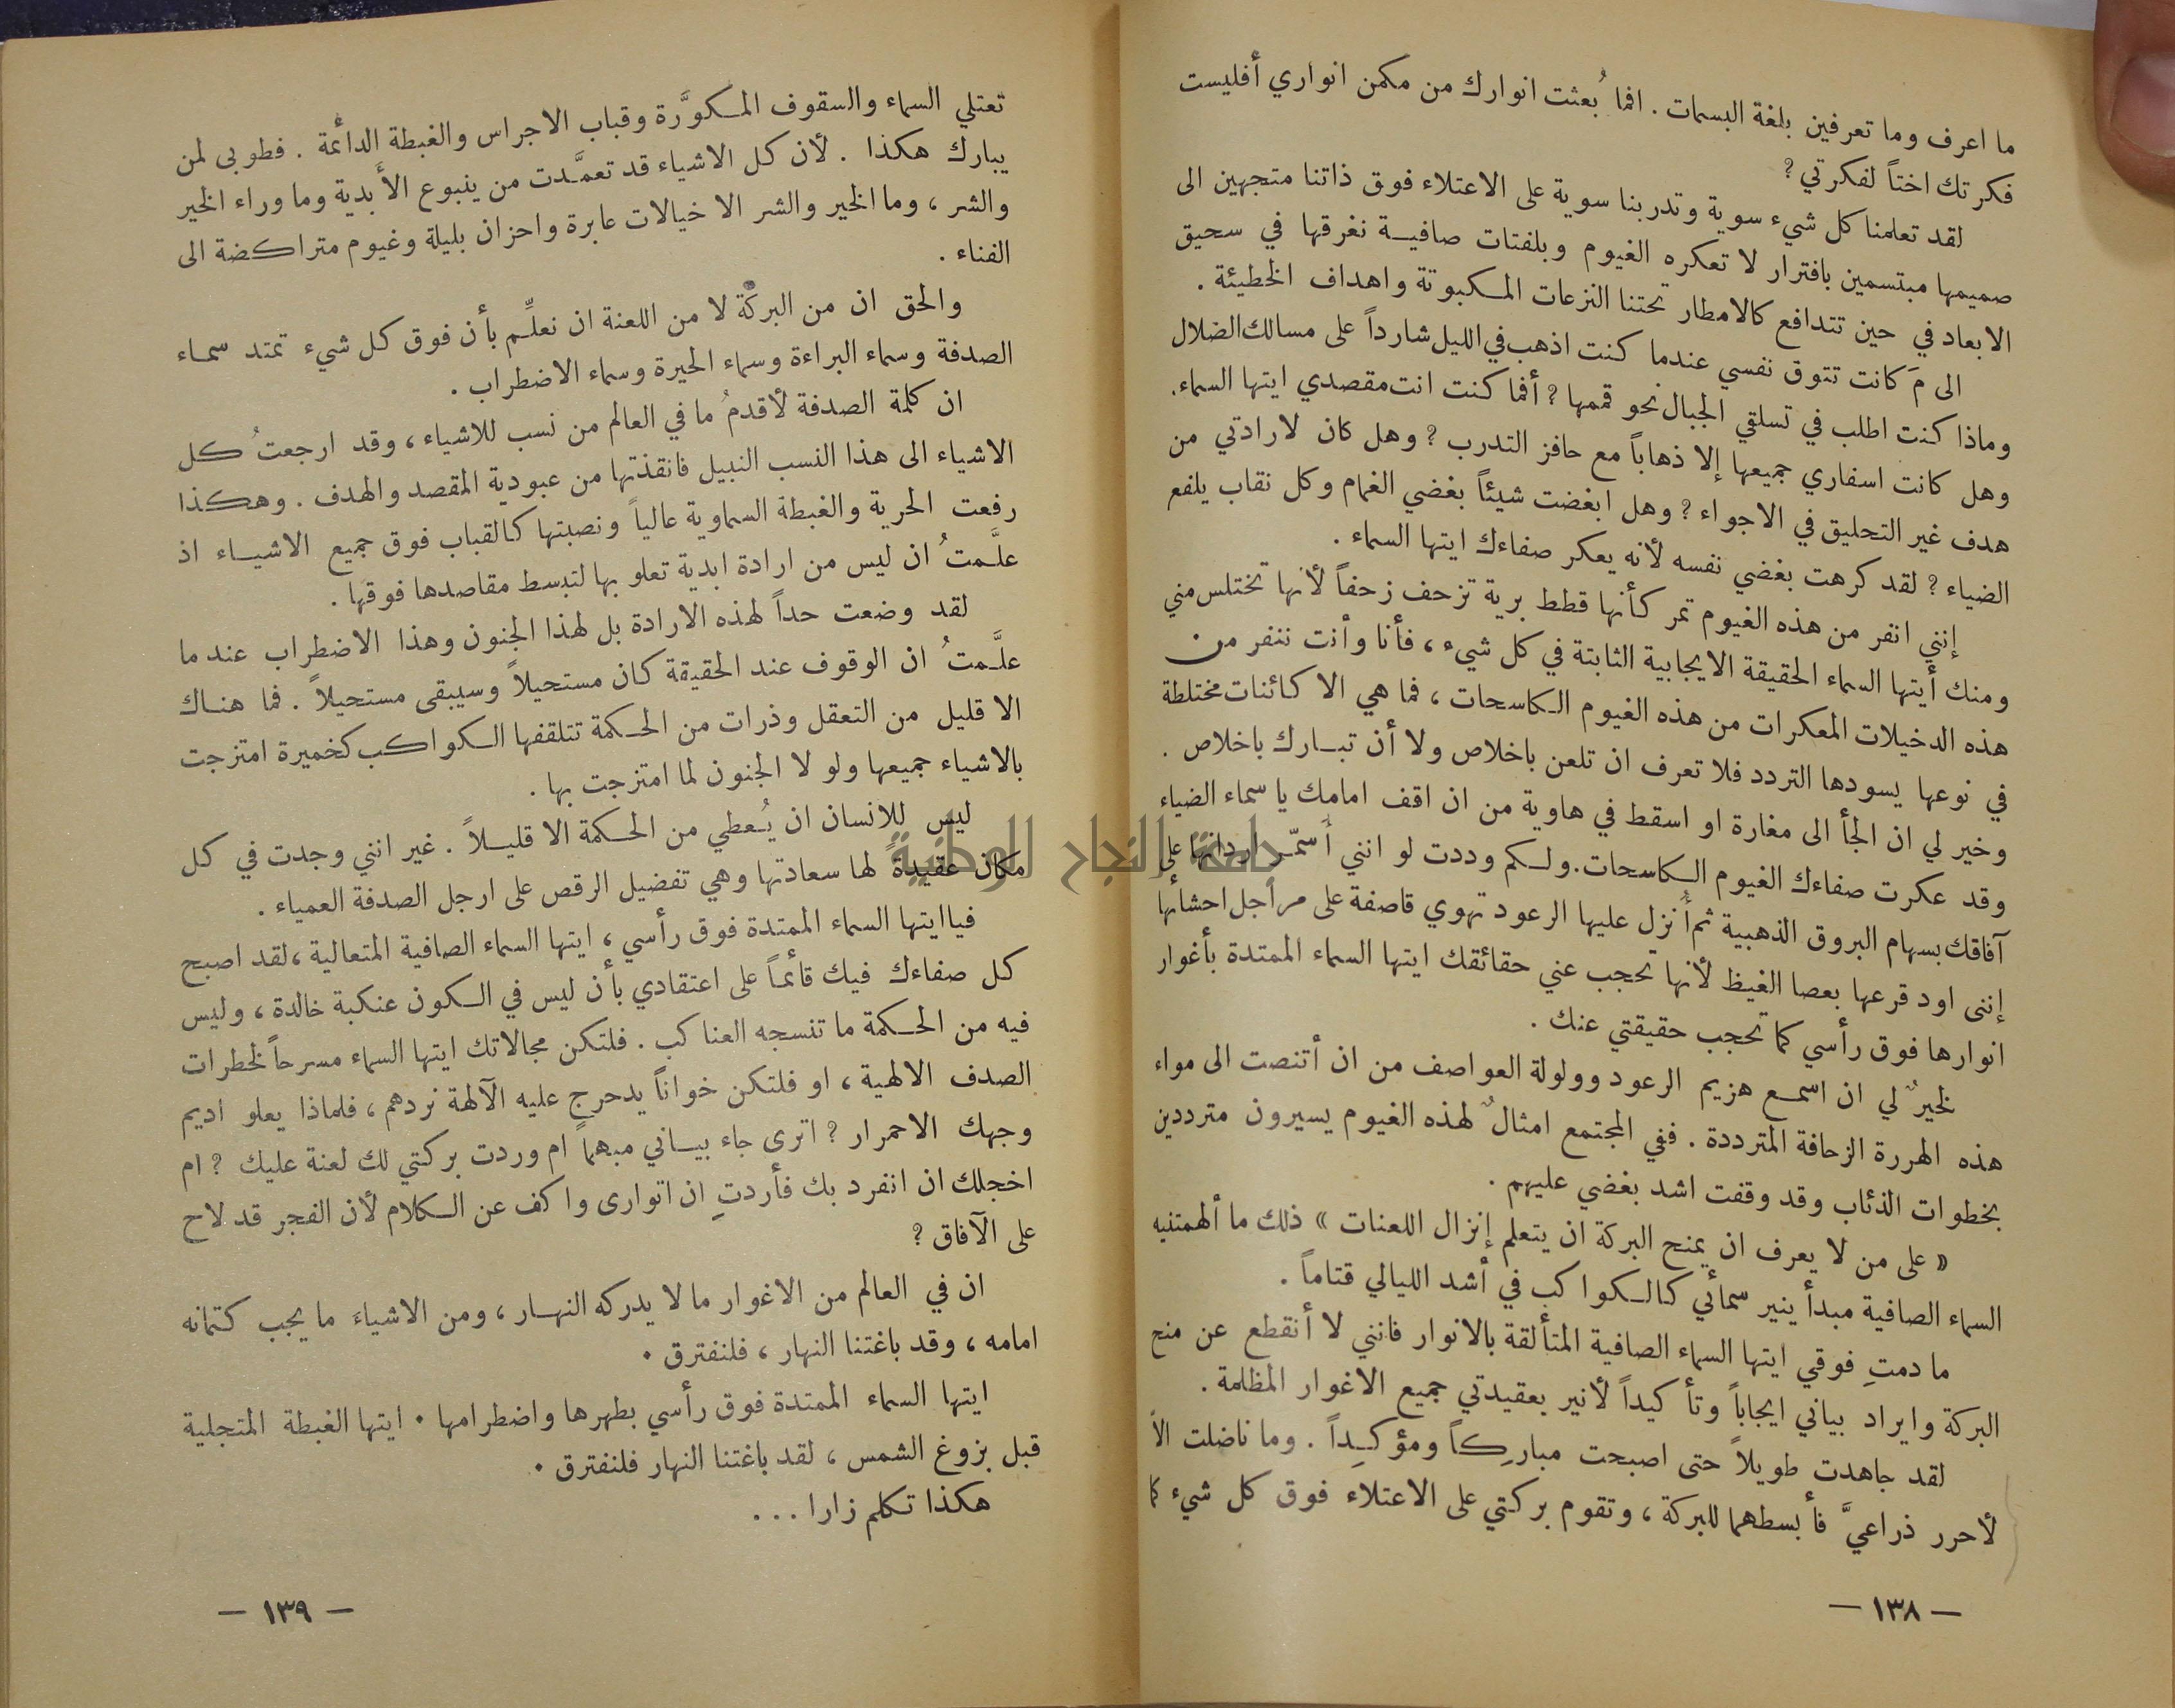 ما اعرف وما تعرفين بلغة البسمات . افما بُعثت انوارك من مكمن انواري أفليست
فكرتك اختاً لفكرتي ؟
لقد تعلمنا كل شيء سوية وتدربنا سوية على الاعتلاء فوق ذاتنا متجهين الى
صميمها مبتسمين بافترار لا تعكره الغيوم وبلفتات صافيـة نغرقها في سحيق
الابعاد في حين تتدافع كالامطار تحتنا النزعات المكبوتة واهداف الخطيئة .
الى مَ كانت تتوق نفسي عندما كنت اذهب في الليل شارداً على مسالك الضلال
وماذا كنت اطلب في تسلقي الجبال نحو قممها ؟ أفما كنت انت مقصدي ايتها السماء.
وهل كانت اسفاري جميعها إلا ذهاباً مع حافز التدرب ؟ وهل كان لارادتي من
هدف غير التحليق في الاجواء ؟ وهل ابغضت شيئاً بغضي الغمام وكل نقاب يلفع
الضياء ؟ لقد كرهت بغضي نفسه لأنه يعكر صفاءك ايتها السماء .
إنني انفر من هذه الغيوم تمر كأنها قطط برية تزحف زحفاً لأنها تختلس مني
ومنك أيتها السماء الحقيقة الايجابية الثابتة في كل شيء ، فأنا وأنت ننفر من
هذه الدخيلات المعكرات من هذه الغيوم الكاسحات ، فما هي الا كائنات مختلطة
في نوعها يسودها التردد فلا تعرف ان تلعن باخلاص ولا أن تبـارك باخلاص .
وخير لي ان الجأ الى مغارة او اسقط في هاوية من ان اقف امامك يا سماء الضياء
وقد عكرت صفاءك الغيوم الكاسحات. ولـكم وددت لو انني أُسمّـر اردانها على
آفاقك بسهام البروق الذهبية ثم أُنزل عليها الرعود تهوي قاصفة على مراجل احشائها
إننى اود قرعها بعصا الغيظ لأنها تحجب عني حقائقك ايتها السماء الممتدة بأغوار
انوارها فوق رأسي كما تحجب حقيقتي عنك .
لخيرٌ لي ان اسمـع هزيم الرعود وولولة العواصف من ان أتنصت الى مواء
هذه الهررة الزحافة المترددة . ففي المجتمع امثالٌ لهذه الغيوم يسيرون مترددين
بخطوات الذئاب وقد وقفت اشد بغضي عليهم .
« على من لا يعرف ان يمنح البركة ان يتعلم إنزال اللعنات » ذلك ما ألهمتنيه
السماء الصافية مبدأ ينير سمائي كالـكواكب في أشد الليالي قتاماً .
ما دمتِ فوقي ايتها السماء الصافية المتألقة بالانوار فانني لا أنقطع عن منح
البركة وايراد بياني ايجاباً وتأكيداً لأنير بعقيدتي جميع الاغوار المظلمة .
لقد جاهدت طويلاً حتى اصبحت مبارِكاً ومؤكـِداً . وما ناضلت الا
لأحرر ذراعيَّ فأبسطهما للبركة ، وتقوم بركتي على الاعتلاء فوق كل شيء كما
— ١٣٨ —
تعتلي السماء والسقوف المـكوَّرة وقباب الاجراس والغبطة الدائمة . فطوبى لمن
يبارك هكذا . لأن كل الاشياء قد تعمَّـدت من ينبوع الأبدية وما وراء الخير
والشر ، وما الخير والشر الا خيالات عابرة واحزان بليلة وغيوم متراكضة الى
الفناء .
والحق ان من البركة لا من اللعنة ان نعلِّم بأن فوق كل شيء تمتد سمـاء
الصدفة وسماء البراءة وسماء الحيرة وسماء الاضطراب .
ان كلمة الصدفة لأقدمُ ما في العالم من نسب للاشياء ، وقد ارجعتُ كـل
الاشياء الى هذا النسب النبيل فانقذتها من عبودية المقصد والهدف . وهـكذا
رفعت الحرية والغبطة السماوية عالياً ونصبتها كالقباب فوق جميع الاشيـاء اذ
علَّـمتُ ان ليس من ارادة ابدية تعلو بها لتبسط مقاصدها فوقها .
لقد وضعت حداً لهذه الارادة بل لهذا الجنون وهذا الاضطراب عندما
علَّـمتُ ان الوقوف عند الحقيقة كان مستحيلاً وسيبقى مستحيلاً . فما هنـاك
الا قليل من التعقل وذرات من الحـكمة تتلقفها الـكواكب كخميرة امتزجت
بالاشياء جميعها ولو لا الجنون لما امتزجت بها .
ليس للانسان ان يُـعطي من الحـكمة الا قليـلاً . غير انني وجدت في كل
مكان عقيدةً لها سعادتها وهي تفضيل الرقص على ارجل الصدفة العمياء .
جامعة النجاح الوطنية
فيا ايتها السماء الممتدة فوق رأسي ، ايتها السماء الصافية المتعالية ، لقد اصبح
كل صفاءك فيك قائماً على اعتقادي بأن ليس في الـكون عنكبة خالدة ، وليس
فيه من الحـكمة ما تنسجه العناكب . فلتكن مجالاتك ايتها السماء مسرحاً لخطرات
الصدف الالهية ، او فلتكن خواناً يدحرج عليه الآلهة نردهم ، فلماذا يعلو اديم
وجهك الاحمرار ؟ اترى جاء بيـاني مبهماً ام وردت بركتي لك لعنة عليك ؟ ام
اخجلك ان انفرد بك فأردتِ ان اتوارى واكف عن الـكلام لأن الفجر قد لاح
على الآفاق ؟
ان في العالم من الاغوار ما لا يدركه النهـار ، ومن الاشياء ما يجب كـتمانه
امامه ، وقد باغتنا النهار ، فلنفترق .
ايتها السماء الممتدة فوق رأسي بطهرها واضطرامها . ايتها الغبطة المتجلية
قبل بزوغ الشمس ، لقد باغتنا النهار فلنفترق .
هكذا تكلم زارا . . .
— ١٣٩ —